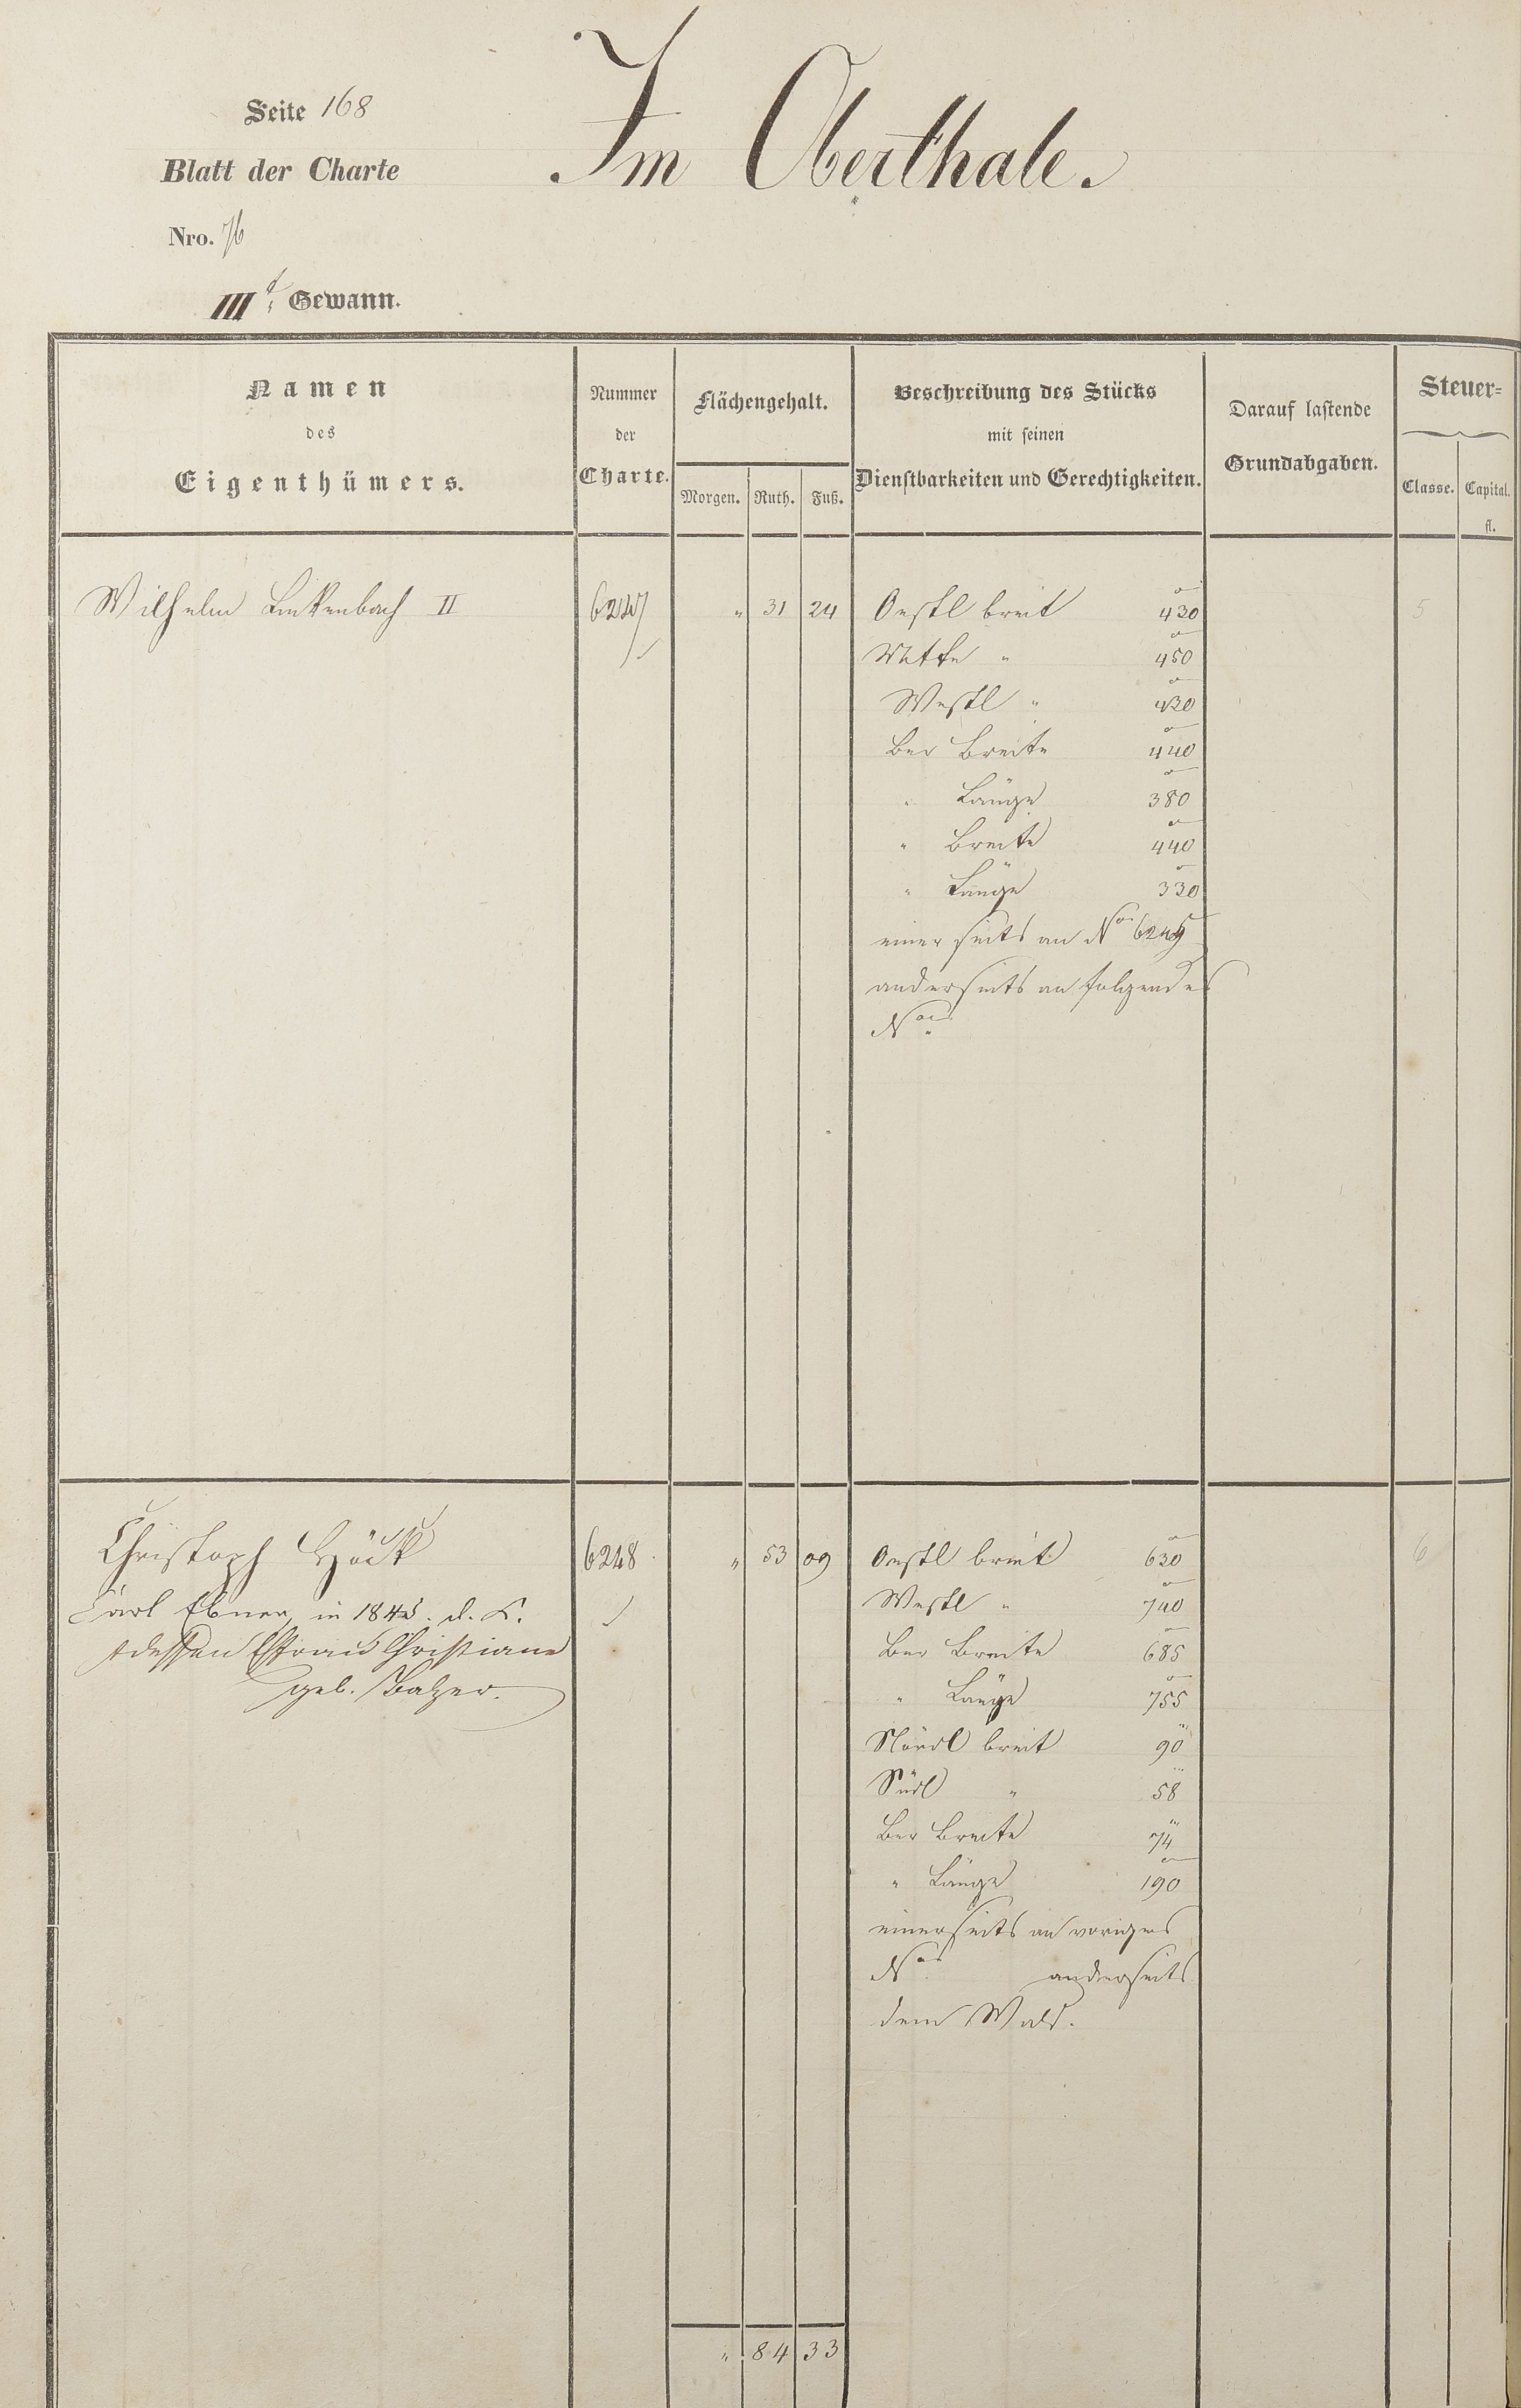 Seite 168
Im Oberthale.
Blatt der Charte
Nro. 76
III t. Gewann.
Namen des Eigenthümers.
Nummer der Charte.
Flächengehalt.
Morgen. Ruth. Fuß.
Beschreibung des Stücks
mit seinen
Dienstbarkeiten und Gerechtigkeiten.
Darauf lastende
Grundabgaben.
Steuer=
Classe. Capital.
fl.
Wilhelm Linkenbach II 6247 " 31 24 Oestl breit 430 5
Mitte " 450
Westl " 430
Ber Breite 440
" Länge 380
" Breite 440
" Länge 330
einerseits an No 6245
anderseits an folgendes
No
Christoph Höck 6248 " 53 09 Oestl breit 630 6
Carl Ebner, in 1845. d. K. Westl " 740
dessen Ehefrau Christiane Ber Breite 685
geb. Balzer. " Länge 755
Nördl breit 90
Südl " 58
Ber Breite 74
" Länge 190
einerseits an voriges
No anderseits
dem Wald.
" 84 33